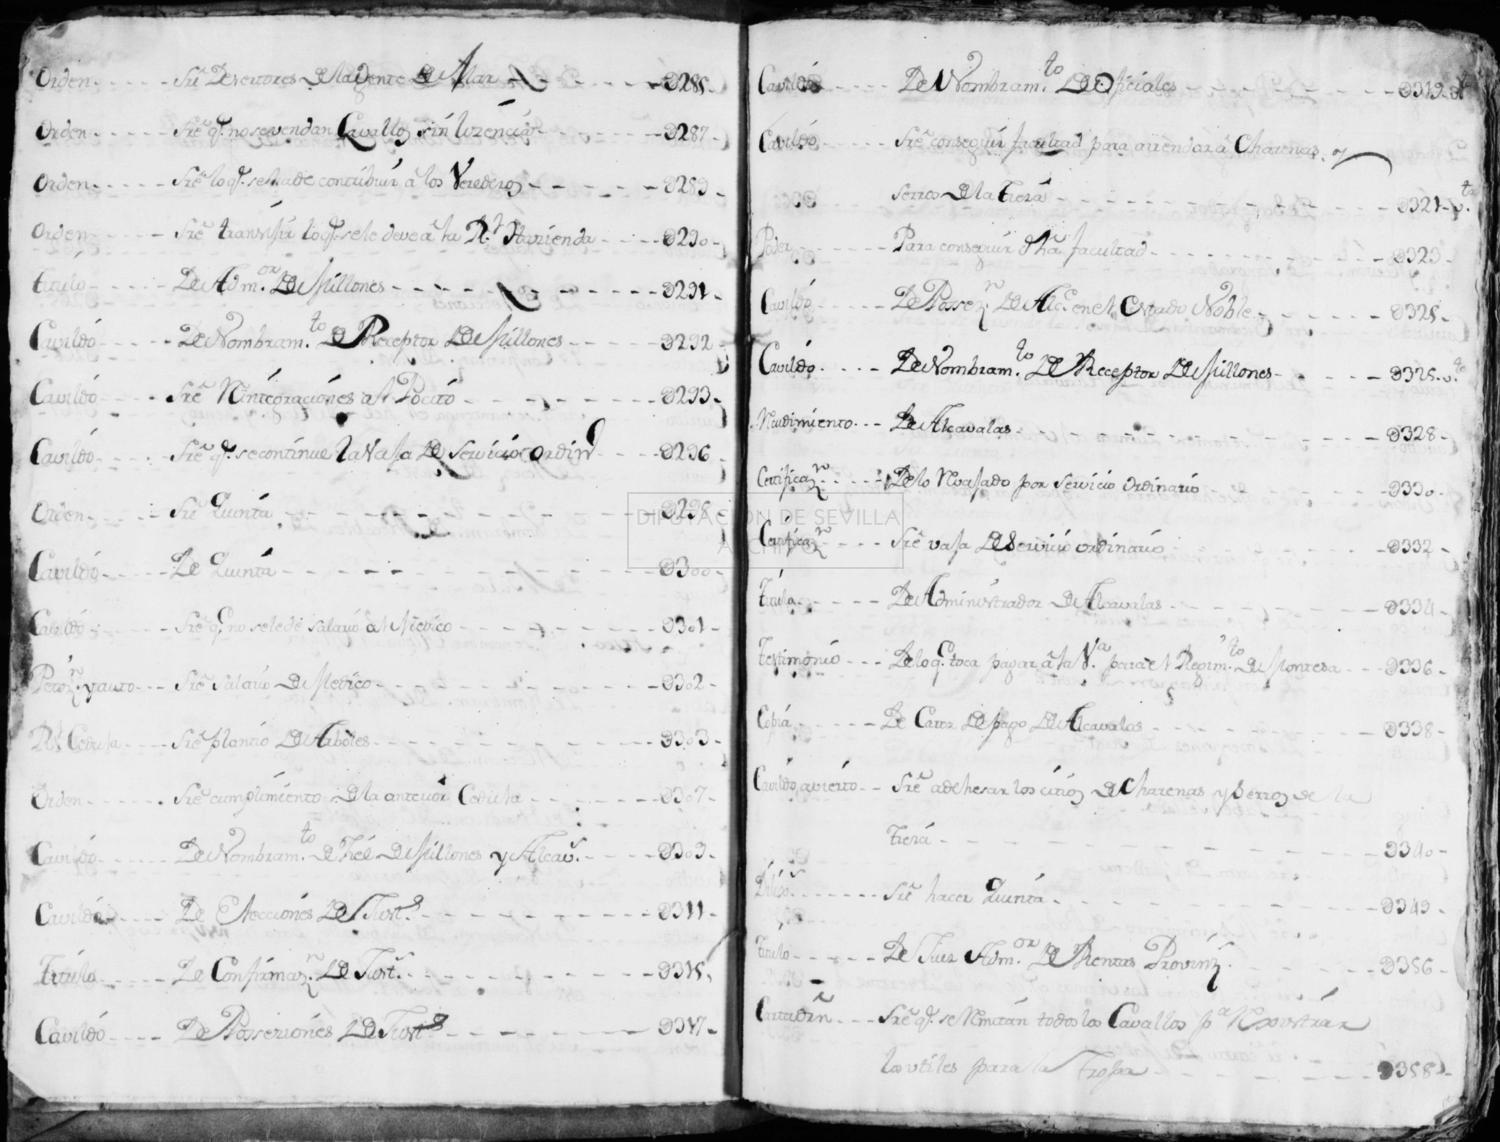 Orden - - - - - Sre. Desertores de la Gente de Mar - - - - - 285 -
Orden - - - - - Sre. q. no se vendan Cavallos sin lizencia - - - 287 -
Orden - - - - - Sre. lo q. se ha de contribuir â los Verederos - - - - - 289 -
Orden - - - - - Sre. lo q. se le deve â la Rl. Hazienda - - - - 290 -
titulo - - - - De Adm.or De Millones - - - - - - - 291 -
Cavildo - - - - De Nombram.to De Receptor De Millones - - - - 292 -
Cavildo - - - - Sre. al Pocito - - - - - - - 293 -
Cavildo - - - - Sre. q. se continue la De Servicio ordin.o - - 296 -
Orden - - - - - Sre. Quinta - - - - - - - 298 -
Cavildo - - - - De Quinta - - - - - - - 300 -
Cavildo - - - - Sre. q. no se le dé salario al Medico - - - - - 301 -
Petizn. y auto - - - Sre. salario De Medico - - - - - - 302 -
Rl. Cedula - - - - Sre. plantio De Arboles - - - - - - 303 -
Orden - - - - - Sre. cumplimiento De la anterior Cedula - - - - 307 -
Cavildo - - - - De Nombram.to De Fiel De Millones y Alcav.s - - - - 309 -
Cavildo - - - - De Elecciones De Just.as - - - - - - 311 -
Titulo - - - - De Confirmazn. De Just.s - - - - - - 315 -
Cavildo - - - - De Possesiones De Just.as - - - - - - 317 -
Cavildo - - - - De Nombram.to De Oficiales - - - - - - 319
Cavildo - - - - Sre. conseguir facultad para arrendar â Charenas, y
serros De la tierra - - - - - - - 321 -
Poder - - - - Para conseguir dha. facultad - - - - - - 323 -
Cavildo - - - - De Possezn. De Alce. en el Estado Noble - - - - 325 -
Cavildo - - - - De Nombram.to De Receptor De Millones - - - - 325 - v.to
- - - De Alcavalas - - - - - - 328 -
Certificazn. - - - De lo por Servicio Ordinario - - - 330 -
Certificazn. - - - Sre. De Servicio ordinario - - - - 332 -
Titulo - - - - De Administrador De Alcavalas - - - - - 334 -
Testimonio - - - De lo q. toca pagar â la V.a para el Regim.to De Montesa - - - 336 -
Copia - - - - De Carta De pago De Alcavalas - - - - - 338 -
Cavildo avierto - - Sre. adehesar los citios De Charenas y Serros de la
Tierra - - - - - - - 340 -
- - - - Sre. hacer Quinta - - - - - - 349 -
Titulo - - - - De Juez Adm.or De Rentas Provinz. - - - - 356 -
- - - Sre. q. se todos los Cavallos pa.
los utiles para la Tropa - - - - - - 358 -
DIPUTACIÓN DE SEVILLA
ARCHIVO